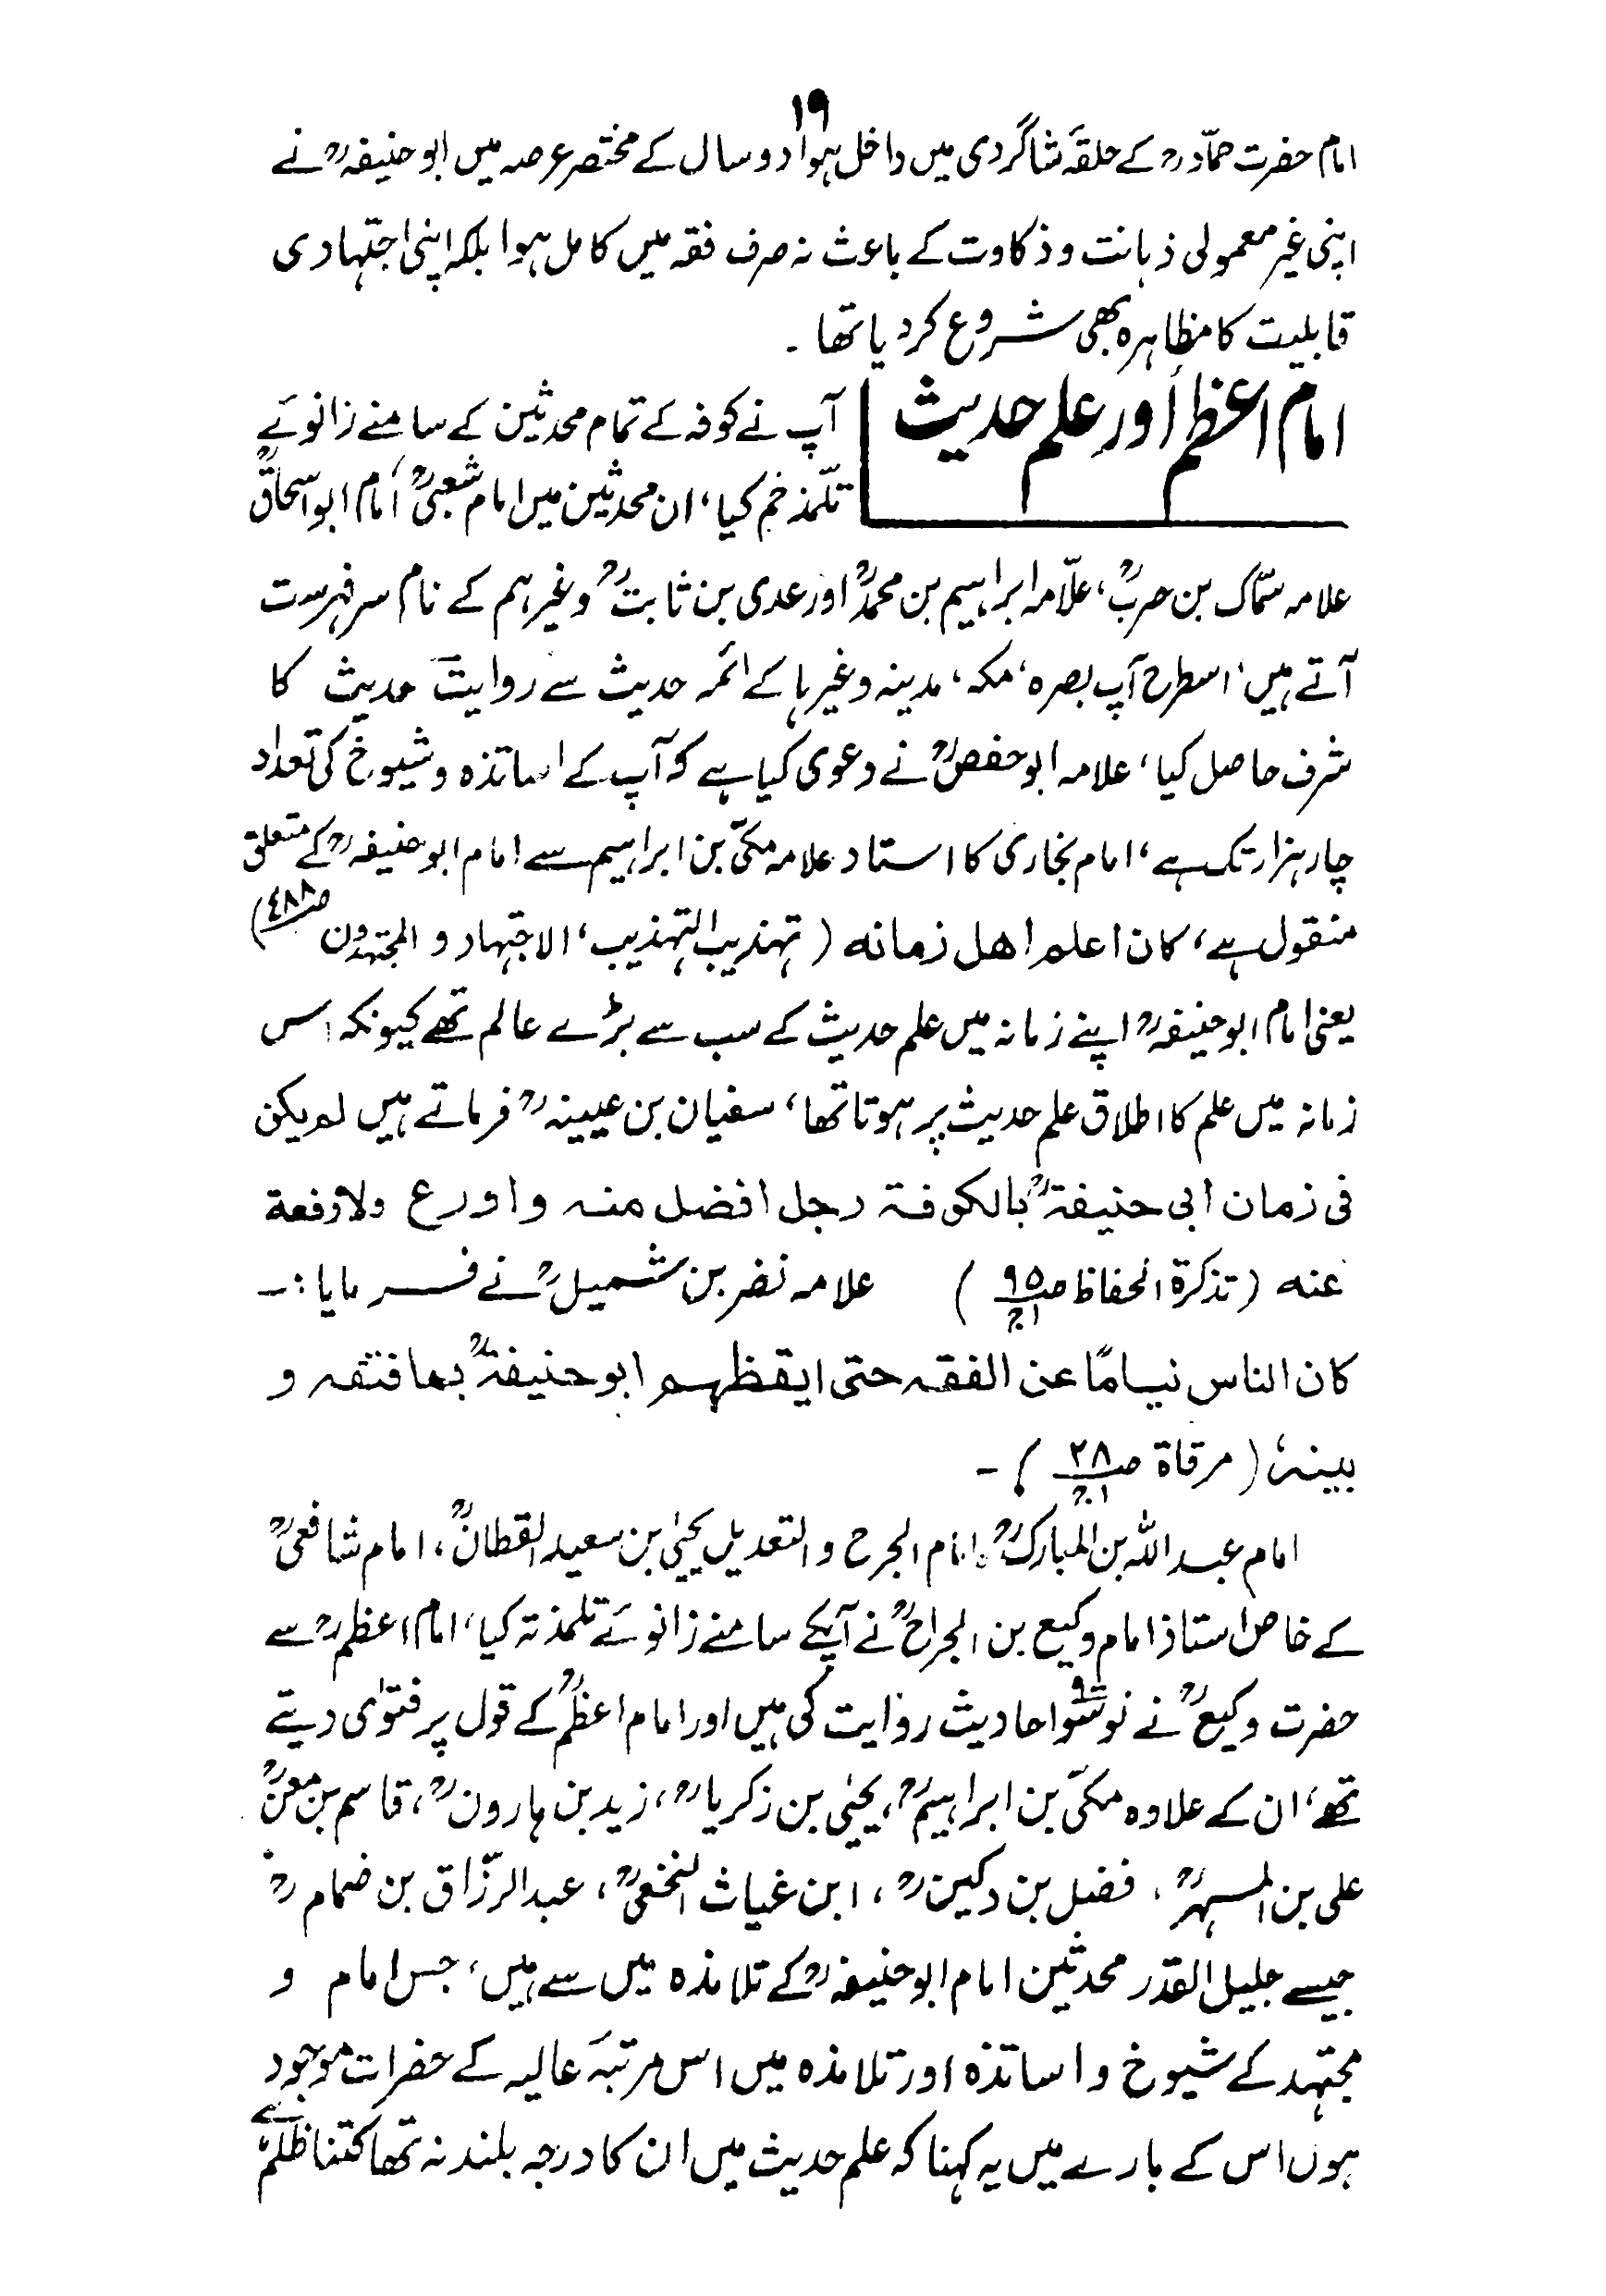 ۱۹
امام حضرت حمّادؒ کے حلقۂ شاگردی میں داخل ہوا دو سال کے مختصر عرصہ میں ابوحنیفہؒ نے
اپنی غیر معمولی ذہانت و ذکاوت کے باعث نہ صرف فقہ میں کامل ہوا بلکہ اپنی اجتہادی
قابلیت کا مظاہرہ بھی شروع کر دیا تھا ۔
امام اعظم اور علم حدیث
آپ نے کوفہ کے تمام محدثین کے سامنے زانوئے
تلمّذ خم کیا، ان محدثین میں امام شعبیؒ، امام ابو اسحاقؒ
علامہ سمّاک بن حربؒ، علّامہ ابراہیم بن محمدؒ اور عدی بن ثابتؒ وغیرہم کے نام سرفہرست
آتے ہیں، اسطرح آپ بصرہ، مکہ، مدینہ وغیرہا کے ائمہ حدیث سے روایت حدیث کا
شرف حاصل کیا، علامہ ابو حفصؒ نے دعوی کیا ہے کہ آپ کے اساتذہ و شیوخ کی تعداد
چار ہزار تک ہے، امام بخاری کا استاد علامہ مکیّ بن ابراہیم سے امام ابوحنیفہؒ کے متعلق
منقول ہے، کان اعلم اهل زمانه (تہذیب التہذیب، الاجتہاد و المجتہدون صـ٤٨٨)
یعنی امام ابوحنیفہؒ اپنے زمانہ میں علم حدیث کے سب سے بڑے عالم تھے کیونکہ اس
زمانہ میں علم کا اطلاق علم حدیث پر ہوتا تھا، سفیان بن عیینہؒ فرماتے ہیں لم یکن
فی زمان ابی حنیفۃؒ بالکوفۃ رجل افضل منہ واورع ولا رفعة
عنه (تذکرۃ الحفاظ صـ۹۵ ج۱) علامہ نضر بن شمیلؒ نے فرمایا :ــ
کان الناس نیامًا عن الفقہ حتی ایقظہم ابو حنیفۃؒ بما فتقہ و
بینہ (مرقاۃ صـ۲۸ ج۱) ــ
امام عبد اللہ بن المبارکؒ، امام الجرح و التعدیل یحیٰی بن سعید القطانؒ، امام شافعیؒ
کے خاص استاذ امام وکیع بن الجراحؒ نے آپکے سامنے زانوئے تلمذ تہ کیا، امام اعظمؒ سے
حضرت وکیعؒ نے نو سو احادیث روایت کی ہیں اور امام اعظمؒ کے قول پر فتوٰی دیتے
تھے، ان کے علاوہ مکیّ بن ابراہیمؒ، یحیٰی بن زکریاؒ، زید بن ہارونؒ، قاسم بن معنؒ
علی بن المسہرؒ، فضل بن دکینؒ، ابن غیاث النخعیؒ، عبد الرزّاق بن ضمامؒ
جیسے جلیل القدر محدثین امام ابوحنیفہؒ کے تلامذہ میں سے ہیں، جس امام و
مجتہد کے شیوخ و اساتذہ اور تلامذہ میں اس مرتبۂ عالیہ کے حضرات موجود
ہوں اس کے بارے میں یہ کہنا کہ علم حدیث میں ان کا درجہ بلند نہ تھا کتنا ظلم ہے